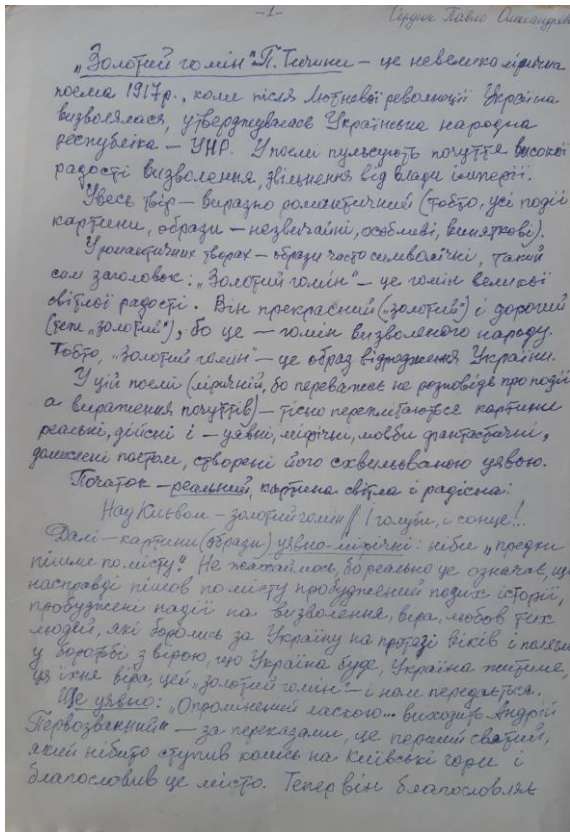 –1–
Сердюк Павло Олександрович
„Золотий гомін" П. Тичини – це невелика лірична
поема 1917р., коли після Лютневої революції Україна
визволялася, утверджувалась Українська народна
республіка – УНР. У поемі пульсують почуття високої
радості визволення, звільнення від влади імперії.
Увесь твір – виразно романтичний (тобто, усі події
картини, образи – незвичайні, особливі, виняткові).
У романтичних творах – образи часто символічні, такий
сам заголовок: „Золотий гомін" – це гомін великої
світлої радості. Він прекрасний („золотий") і дорогий
(теж „золотий"), бо це – гомін визволеного народу.
Тобто, „Золотий гомін" – це образ відродження України.
У цій поемі (ліричній, бо переважає не розповідь про події
а вираження почуттів) – тісно переплітаються картини
реальні, дійсні і – уявні, міфічні, мовби фантастичні,
домислені поетом, створені його схвильованою уявою.
Початок – реальний, картина світла і радісна:
Над Києвом – золотий гомін // І голуби, і сонце!..
Далі – картини (образи) уявно-міфічні: ніби „предки
пішли по місту". Не лякаймось, бо реально це означає, що
насправді пішов по місту пробуджений подих історії,
пробуджені надії на визволення, віра, любов тих
людей, які боролись за Україну на протязі віків і полягли
у боротьбі з вірою, що Україна буде, Україна житиме,
ця їхня віра, цей „золотий гомін" – і нам передається.
Ще уявно: „Опромінений ласкою... виходить Андрій
Первозванний" – за переказами, це перший святий,
який нібито ступив колись на Київські гори і
благословив це місто. Тепер він благословляє